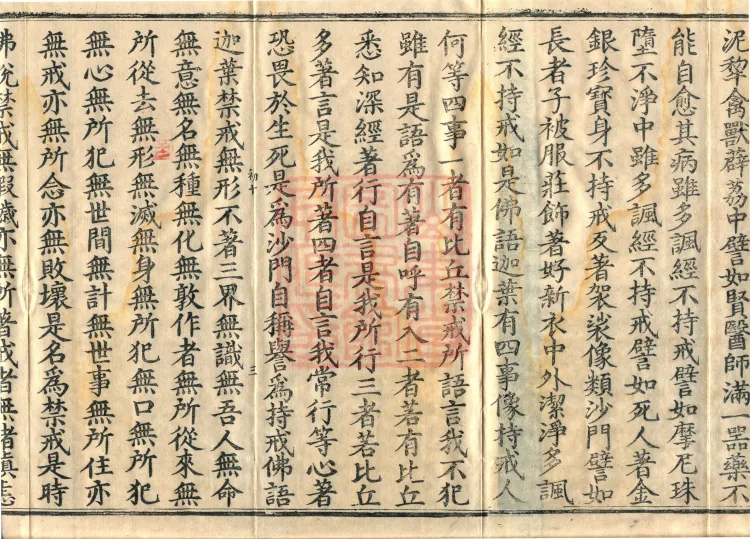 泥犂禽獸薜荔中譬如賢醫師滿一噐藥不
能自愈其病雖多諷經不持戒譬如摩尼珠
墮不淨中雖多諷經不持戒譬如死人著金
銀珍寶身不持戒反著袈裟像類沙門譬如
長者子被服莊飾著好新衣中外潔淨多諷
經不持戒如是佛語迦葉有四事像持戒人
何等四事一者有比丘禁戒所語言我不犯
雖有是語爲有著自呼有入二者若有比丘
悉知深經著行自言是我所行三者若比丘
多著言是我所著四者自言我常行等心著
恐畏於生死是爲沙門自稱譽爲持戒佛語
初十 三
迦葉禁戒無形不著三界無識無吾人無命
無意無名無種無化無敎作者無所從來無
所從去無形無滅無身無所犯無口無所犯
無心無所犯無世間無計無世事無所住亦
無戒亦無所念亦無敗壞是名爲禁戒是時
佛說禁戒無瑕穢亦無所著戒者無者瞋恚